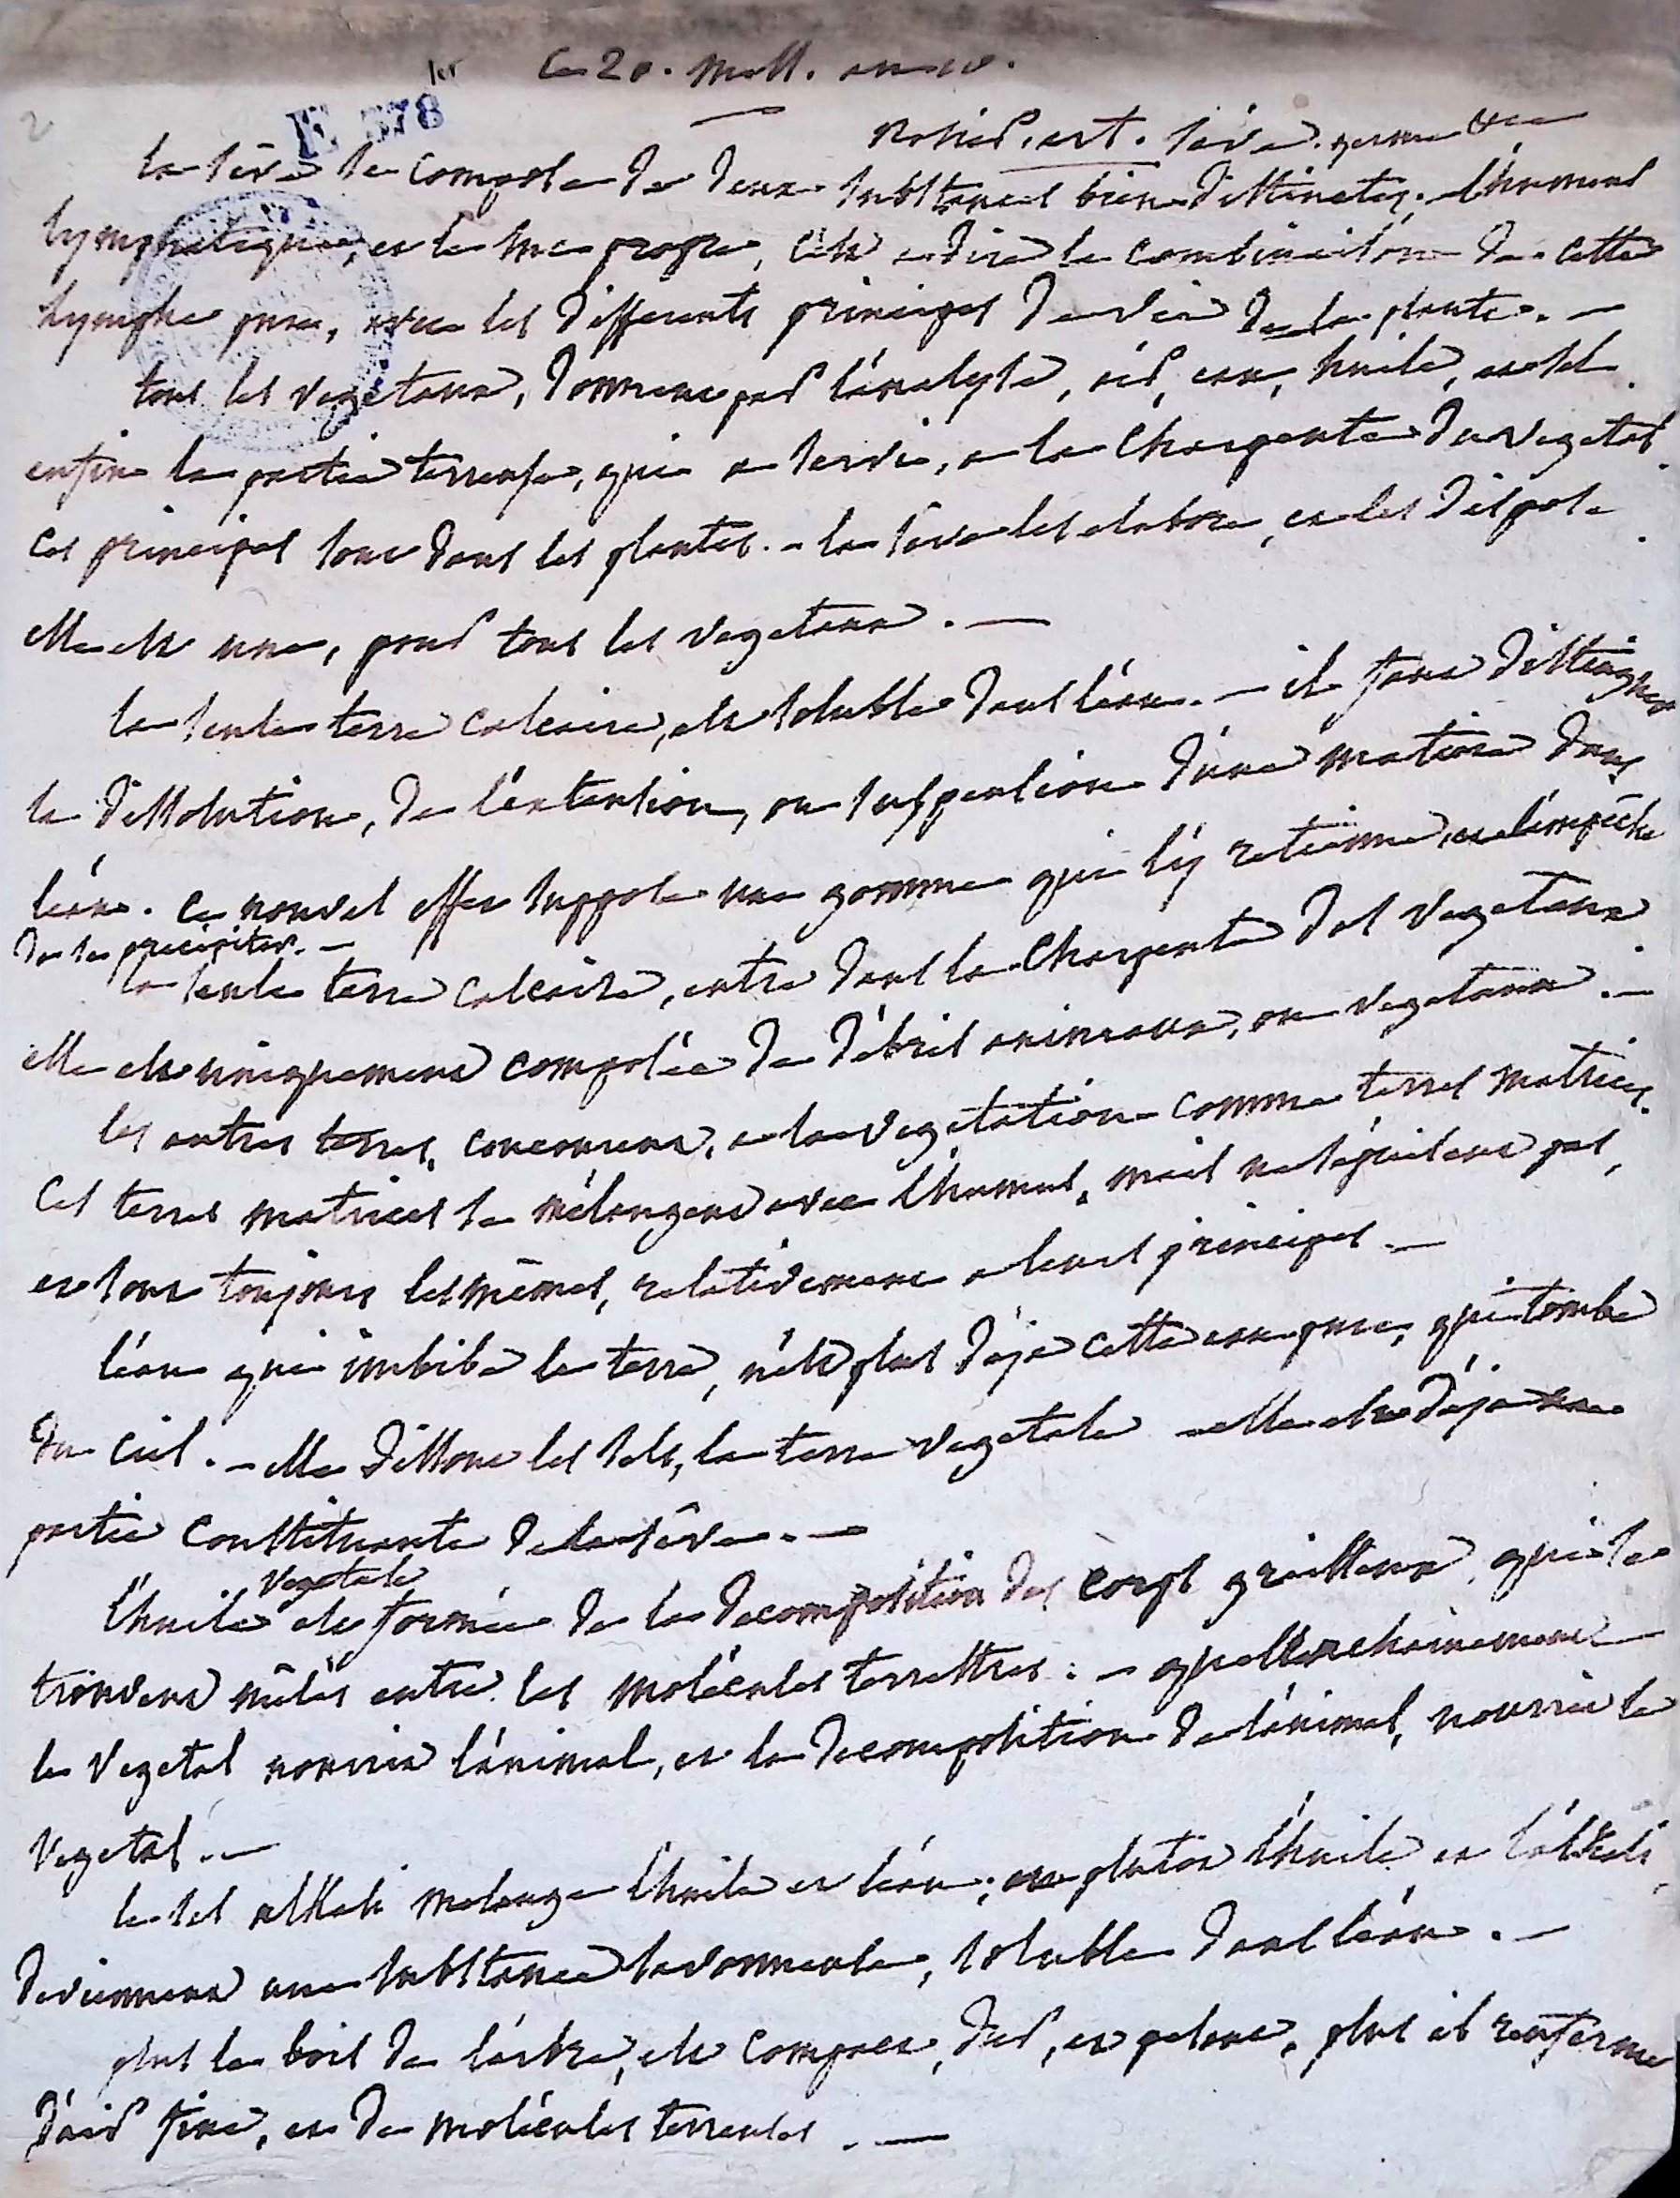 1er
ce 20. mess. an 10.
E 378
2
Rozier, art. sève. germe &ca
la sève se compose de deux substances bien distinctes; l'humeur
lymphatique, et le suc propre, c'est a dire la combinaison de cette
lymphe pure, avec les differents principes de vie de la plante. —
tous les vegetaux, donnent par l'analyse, air, eau, huile, et sel
enfin la partie terreuse, qui a servi, a la charpente du vegetal.
ces principes sont dans les plantes. - la sève les elabore, et les dispose.
elle est une, pour tous les vegetaux. —
la seule terre calcaire, est soluble dans l'eau. — il faut distinguer
la dissolution, de l'extension, ou suspension d'une matiere dans
l'eau. ce nouvel effet suppose une gomme qui l'y retienne, et l'empêche
de se precipiter. —
la seule terre calcaire, entre dans la charpente des vegetaux.
elle est uniquement composée de débris animaux, ou vegetaux. —
les autres terres, concourent, a la vegetation comme terres matrices.
ces terres matrices se mélangent avec l'humus, mais ne s'épuisent pas,
et sont toujours les mêmes, relativement a leurs principes. —
l'eau qui imbibe la terre, n'est plus déja cette eau pure, qui tombe
du ciel. - elle dissout les sels, la terre vegetale - elle est déja
partie constituante de la sève. —
l'huile vegetale est formée de la decomposition des corps graisseux, qui se
trouvent mêlés entre les molécules terrestres. - quel enchainement
le vegetal nourrit l'animal, et la decomposition de l'animal, nourrit le
vegetal. —
le sel alkali melange l'huile et l'eau; ou plutot l'huile et l'alkali
deviennent une substance savonneuse, soluble dans l'eau. —
plus le bois de l'arbre, est compact, dur, et pesant, plus il renferme
d'air fixe, et de molécules terreuses. —